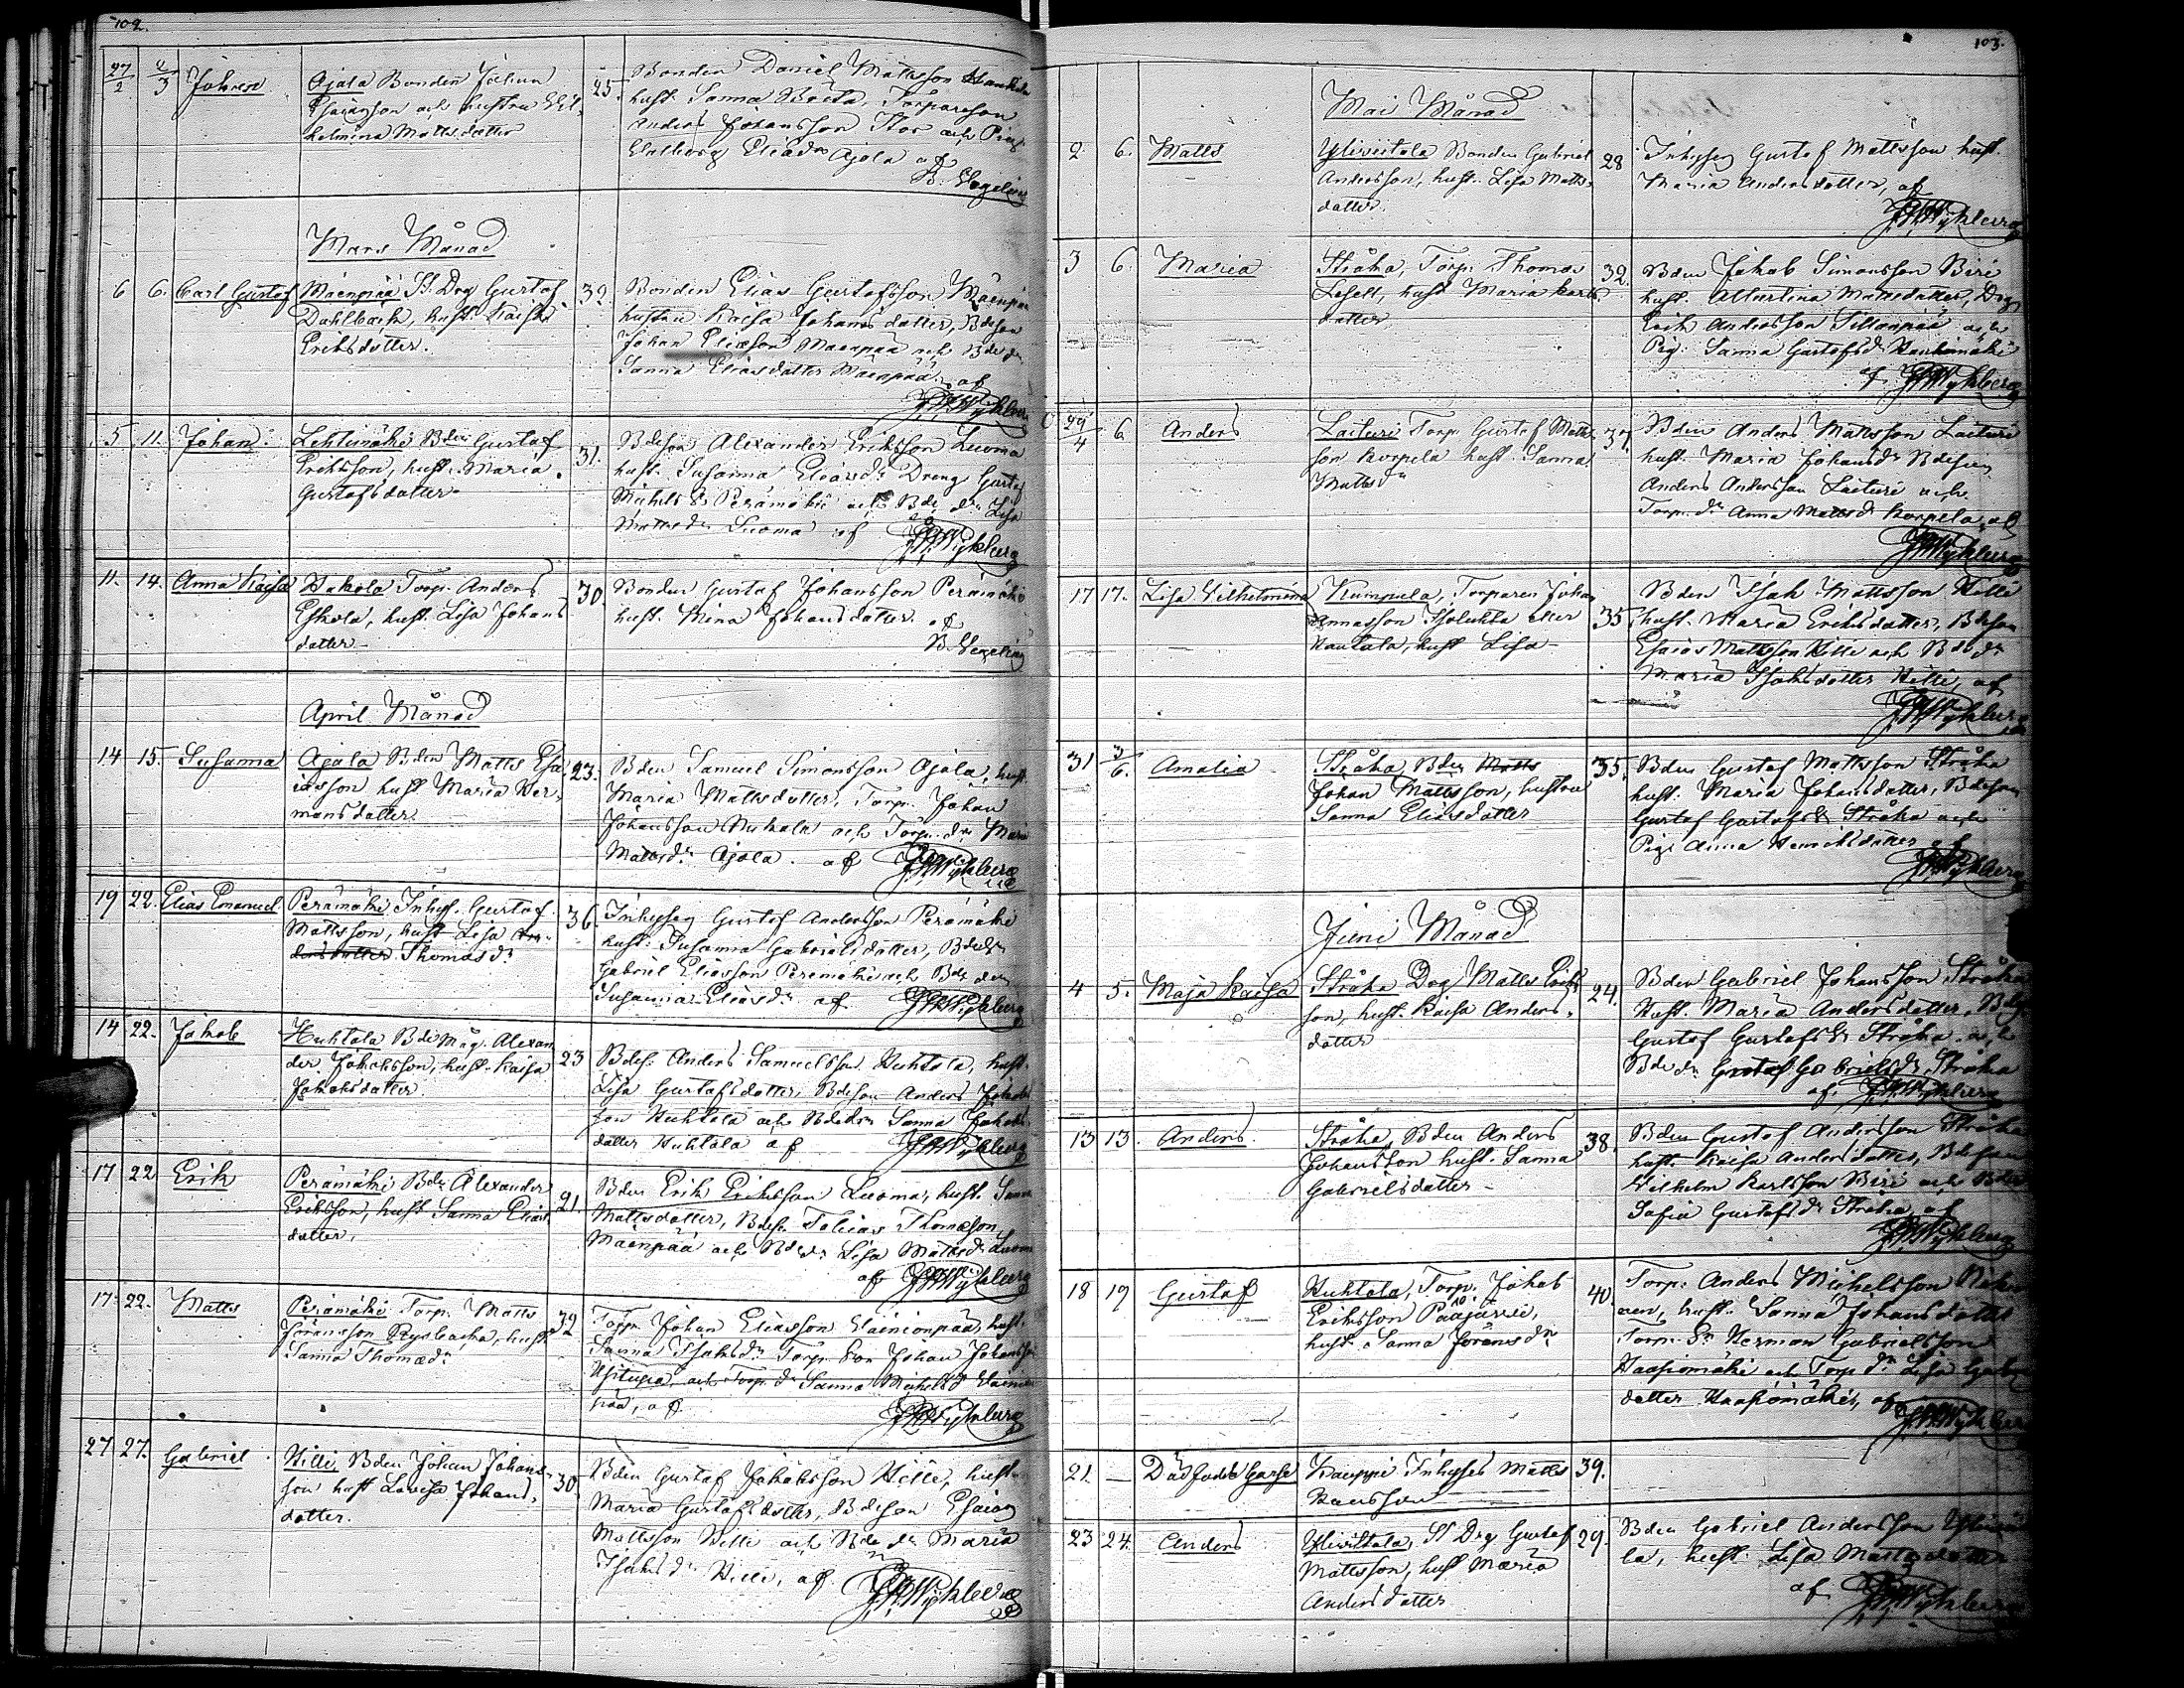 102.
27/2 2/3 Johan Ajala Bonden Johan
Esaiasson och hustru Wil-
helmina Mattsdotter
25.
Bonden Daniel Mattsson
hust. Sanna Brita, Torpareson
Anders Johansson och Pig.
Eliædr Ajala af
B. Vegelius
Mars Månad
6 6. Carl Gustaf Mäenpää St. Drg Gustaf
Dahlbacka, hust. Kaisa
Eriksdotter.
32.
Bonden Elias Gustafsson Mäenpää
hustru Kaisa Johansdotter, Bdeson
Johan Eliasson Mäenpää och Bdedr
Sanna Eliasdotter Mäenpää af
5 11. Johan Lehtimäki Bden Gustaf
Eriksson, hust. Maria
Gustafsdotter
31.
Bdeson Alexander Eriksson Luoma
hust. Susanna Eliasdr Dreng Gustaf
Michels Sn Perämäki och Bdedr Lisa
Mattsdr Luoma af
11. 14. Anna Kaisa Hakola Torp. Anders
Eskola, hust. Lisa Johans
dotter
30.
Bonden Gustaf Johansson Perämäki
hust. Mina Johansdotter. af
B. Vegelius
April Månad
14 15. Susanna Ajala Bden Matts Esa
iasson hust Maria Her-
mansdotter
23.
Bden Samuel Simonsson Ajala, hust.
Maria Mattsdotter, Torp. Johan
Johansson och Torp. dr Maria
Mattsdr Ajala. af
19 22. Elias Emanuel Perämäki Inhys. Gustaf
Mattsson, hust Lisa An-
dersdotter Thomasdr
36.
Inhysing Gustaf Andersson Perämäki
hust. Susanna Gabrielsdotter, Bdeson
Gabriel Eliasson Perämäki och Bde dr
Susanna Eliasdr af
14 22. Jakob Huhtala Bde Måg. Alexan
der Jakobsson, hust. Kaisa
Jakobsdotter.
23
Bdes. Anders Samuelsson Huhtala, hust.
Lisa Gustafsdotter, Bdeson Anders Jakobs
son Huhtala och Bdedr Sanna Jakobs
dotter Huhtala af
17 22 Erik Perämäki Bden Alexander
Eriksson, hust Sanna Elias
dotter.
21.
Bden Erik Eriksson Luoma, hust. Sanna
Mattsdotter, Bdes. Tobias Thomasson
Mäenpää och Bdedr Lisa Mattsdr Luoma
af
17. 22. Matts Perämäki Torp. Matts
Joransson Rysbacka, hust
Sanna Thomædr
32
Torp. Johan Eliasson Wainionpää, hust.
Sanna Isaksdr Torp. Son Johan Johansson
och Torp. dr Sanna Michelsdr Wainion
pää, af
27 27. Gabriel Hilli, Bden Johan Johans-
son hust Lovisa Johans-
dotter.
30.
Bden Gustaf Jakobsson Hilli, hust
Maria Gustafsdotter, Bdeson Esaias
Mattsson Hilli och Bde dr Maria
Isaksdr Hilli, af
103.
Mai Månad
2 6. Matts Yliviitala Bonden Gabriel
Andersson, hust. Lisa Matts-
dotter.
28
Inhysing Gustaf Mattsson hust.
Maria Andersdotter, af
3 6. Maria Stråka, Torp. Thomas
hust Maria Karls
dotter
32.
Bden Jakob Simonsson Biri
hust. Albertina Mattsdotter, Drg
Erik Andersson Sillanpää och
Pig. Sanna Gustafsdr
af
29/4 6 Anders Laituri Torp. Gustaf Matts
son Korpela hust. Sanna
Mattsdr
37.
Bden Anders Mattsson Laituri
hust. Maria Johansdr Bdeson
Anders Andersson Laituri och
Torp. dr Anna Mattsdr Korpela af
17 17. Lisa Vilhelmina Kumpula, Torparen Johan
Annasson eller
hust Lisa
35
Bden Isak Mattsson Hilli
hust. Maria Eriksdotter, Bdeson
Esaias Mattsson Hilli och Bdedr
Maria Isaksdotter Hilli, af
31 3/6. Amalia Stråka, Bden Matts
Johan Mattsson, hustru
Sanna Eliasdotter
35.
Bden Gustaf Mattsson Stråka
hust. Maria Johansdotter, Bdeson
Gustaf Gustafs Sn Stråka och
Pig. Anna Henriksdotter af
Juni Månad
4 5. Maja Kaisa Stråka Drg Matts Eriks
son, hust. Kaisa Anders-
dotter
24.
Bden Gabriel Johansson Stråka
Hust. Maria Andersdotter, Bdes.
Gustaf Gustafs Sn Stråka och
Bdedr Gustaf Gabrielsdr Stråka
af
13 13. Anders. Stråka, Bden Anders
Johansson hust. Sanna
Gabrielsdotter
38.
Bden Gustaf Andersson Stråka
hust. Kaisa Andersdotter, Bdeson
Wilhelm Karlsson Biri och Bdedr
Sofia Gustafsdr Stråka af
18 19 Gustaf Huhtala, Torp. Jakob
Eriksson Pääjärvi,
hust. Sanna Joransdr
40.
Torp. Anders Michelsson
hust. Sanna Johansdotter
Torp. Sn Herman Gabrielsson
Haapiomäki och Torp. dr Lisa Gabr
dotter Haapiomäki, af
21. — Dödfödt Gosse Kauppi Inhyses Matts
39.
23 24. Anders Yliviitala, St Drg Gustaf
Mattsson, hust Maria
Andersdotter
29.
Bden Gabriel Andersson Yliviita
la, hust. Lisa Mattsdotter
af